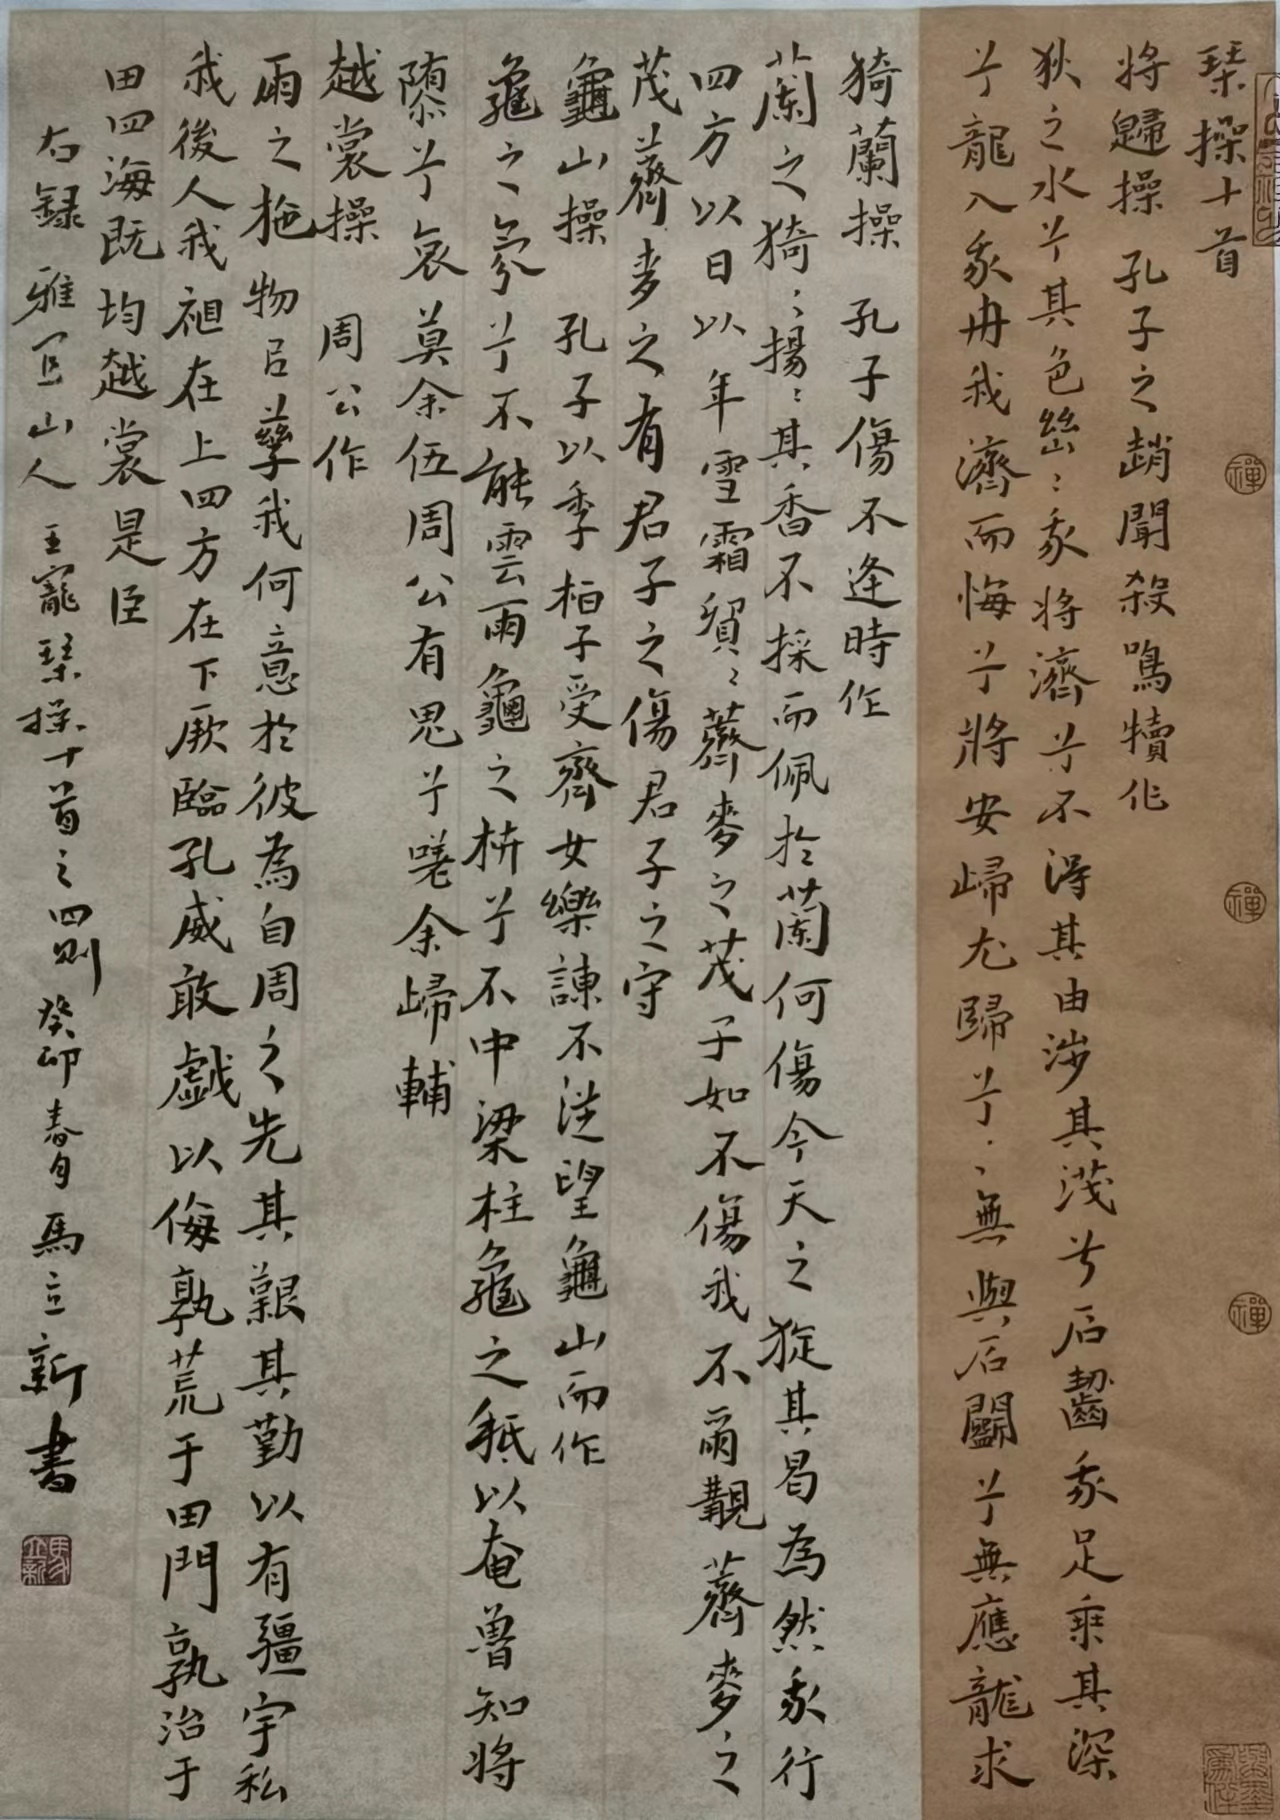 琴操十首
将歸操 孔子之趙聞殺鳴犢作
狄之水兮其色幽〻我将濟兮不得其由涉其淺兮石齧我足乘其深
兮龍入我舟我濟而悔兮將安歸尤歸兮〻無與石鬭兮無應龍求
猗蘭操 孔子傷不逢時作
蘭之猗〻揚〻其香不採而佩於蘭何傷今天之旋其曷為然我行
四方以日以年雪霜貿〻薺麥之茂子如不傷我不爾觀薺麥之
茂薺麥之有君子之傷君子之守
龜山操 孔子以季桓子受齊女樂諫不從望龜山而作
龜之氛兮不能雲雨龜之枿兮不中梁柱龜之秪以奄魯知将
隳兮哀莫余伍周公有思兮嗟余歸輔
越裳操 周公作
雨之施物以孳我何意於彼為自周之先其艱其勤以有疆宇私
我後人我祖在上四方在下厥臨孔威敢戲以侮孰荒于門孰治于
田四海既均越裳是臣
右録 雅宜山人王寵琴操十首之四則 癸卯春月 馬立新書
禪
禪
禪
馬立新